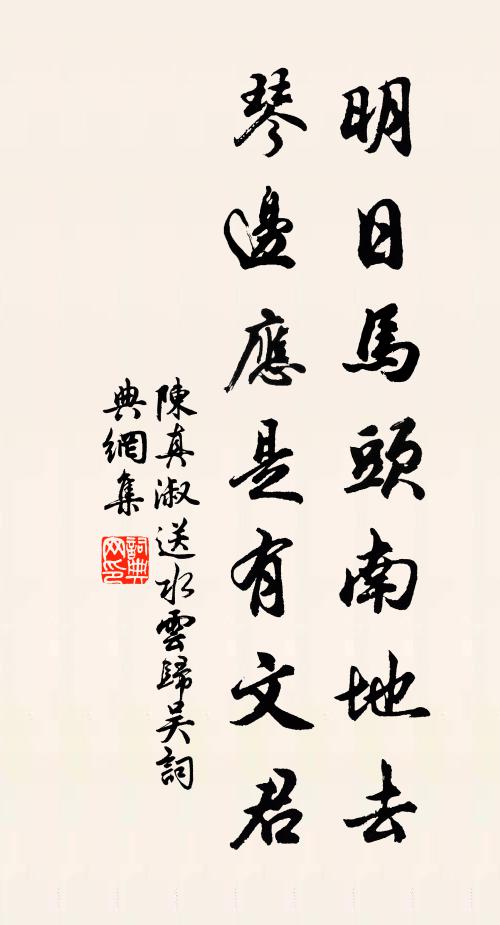 明日馬頭南地去
琴邊應是有文君
陳真淑送水雲歸吳詞
典網集
詞典網印